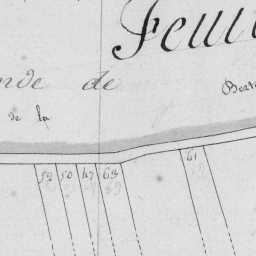 Feuil
nde de
Berta
de la
52 50 47 63 61